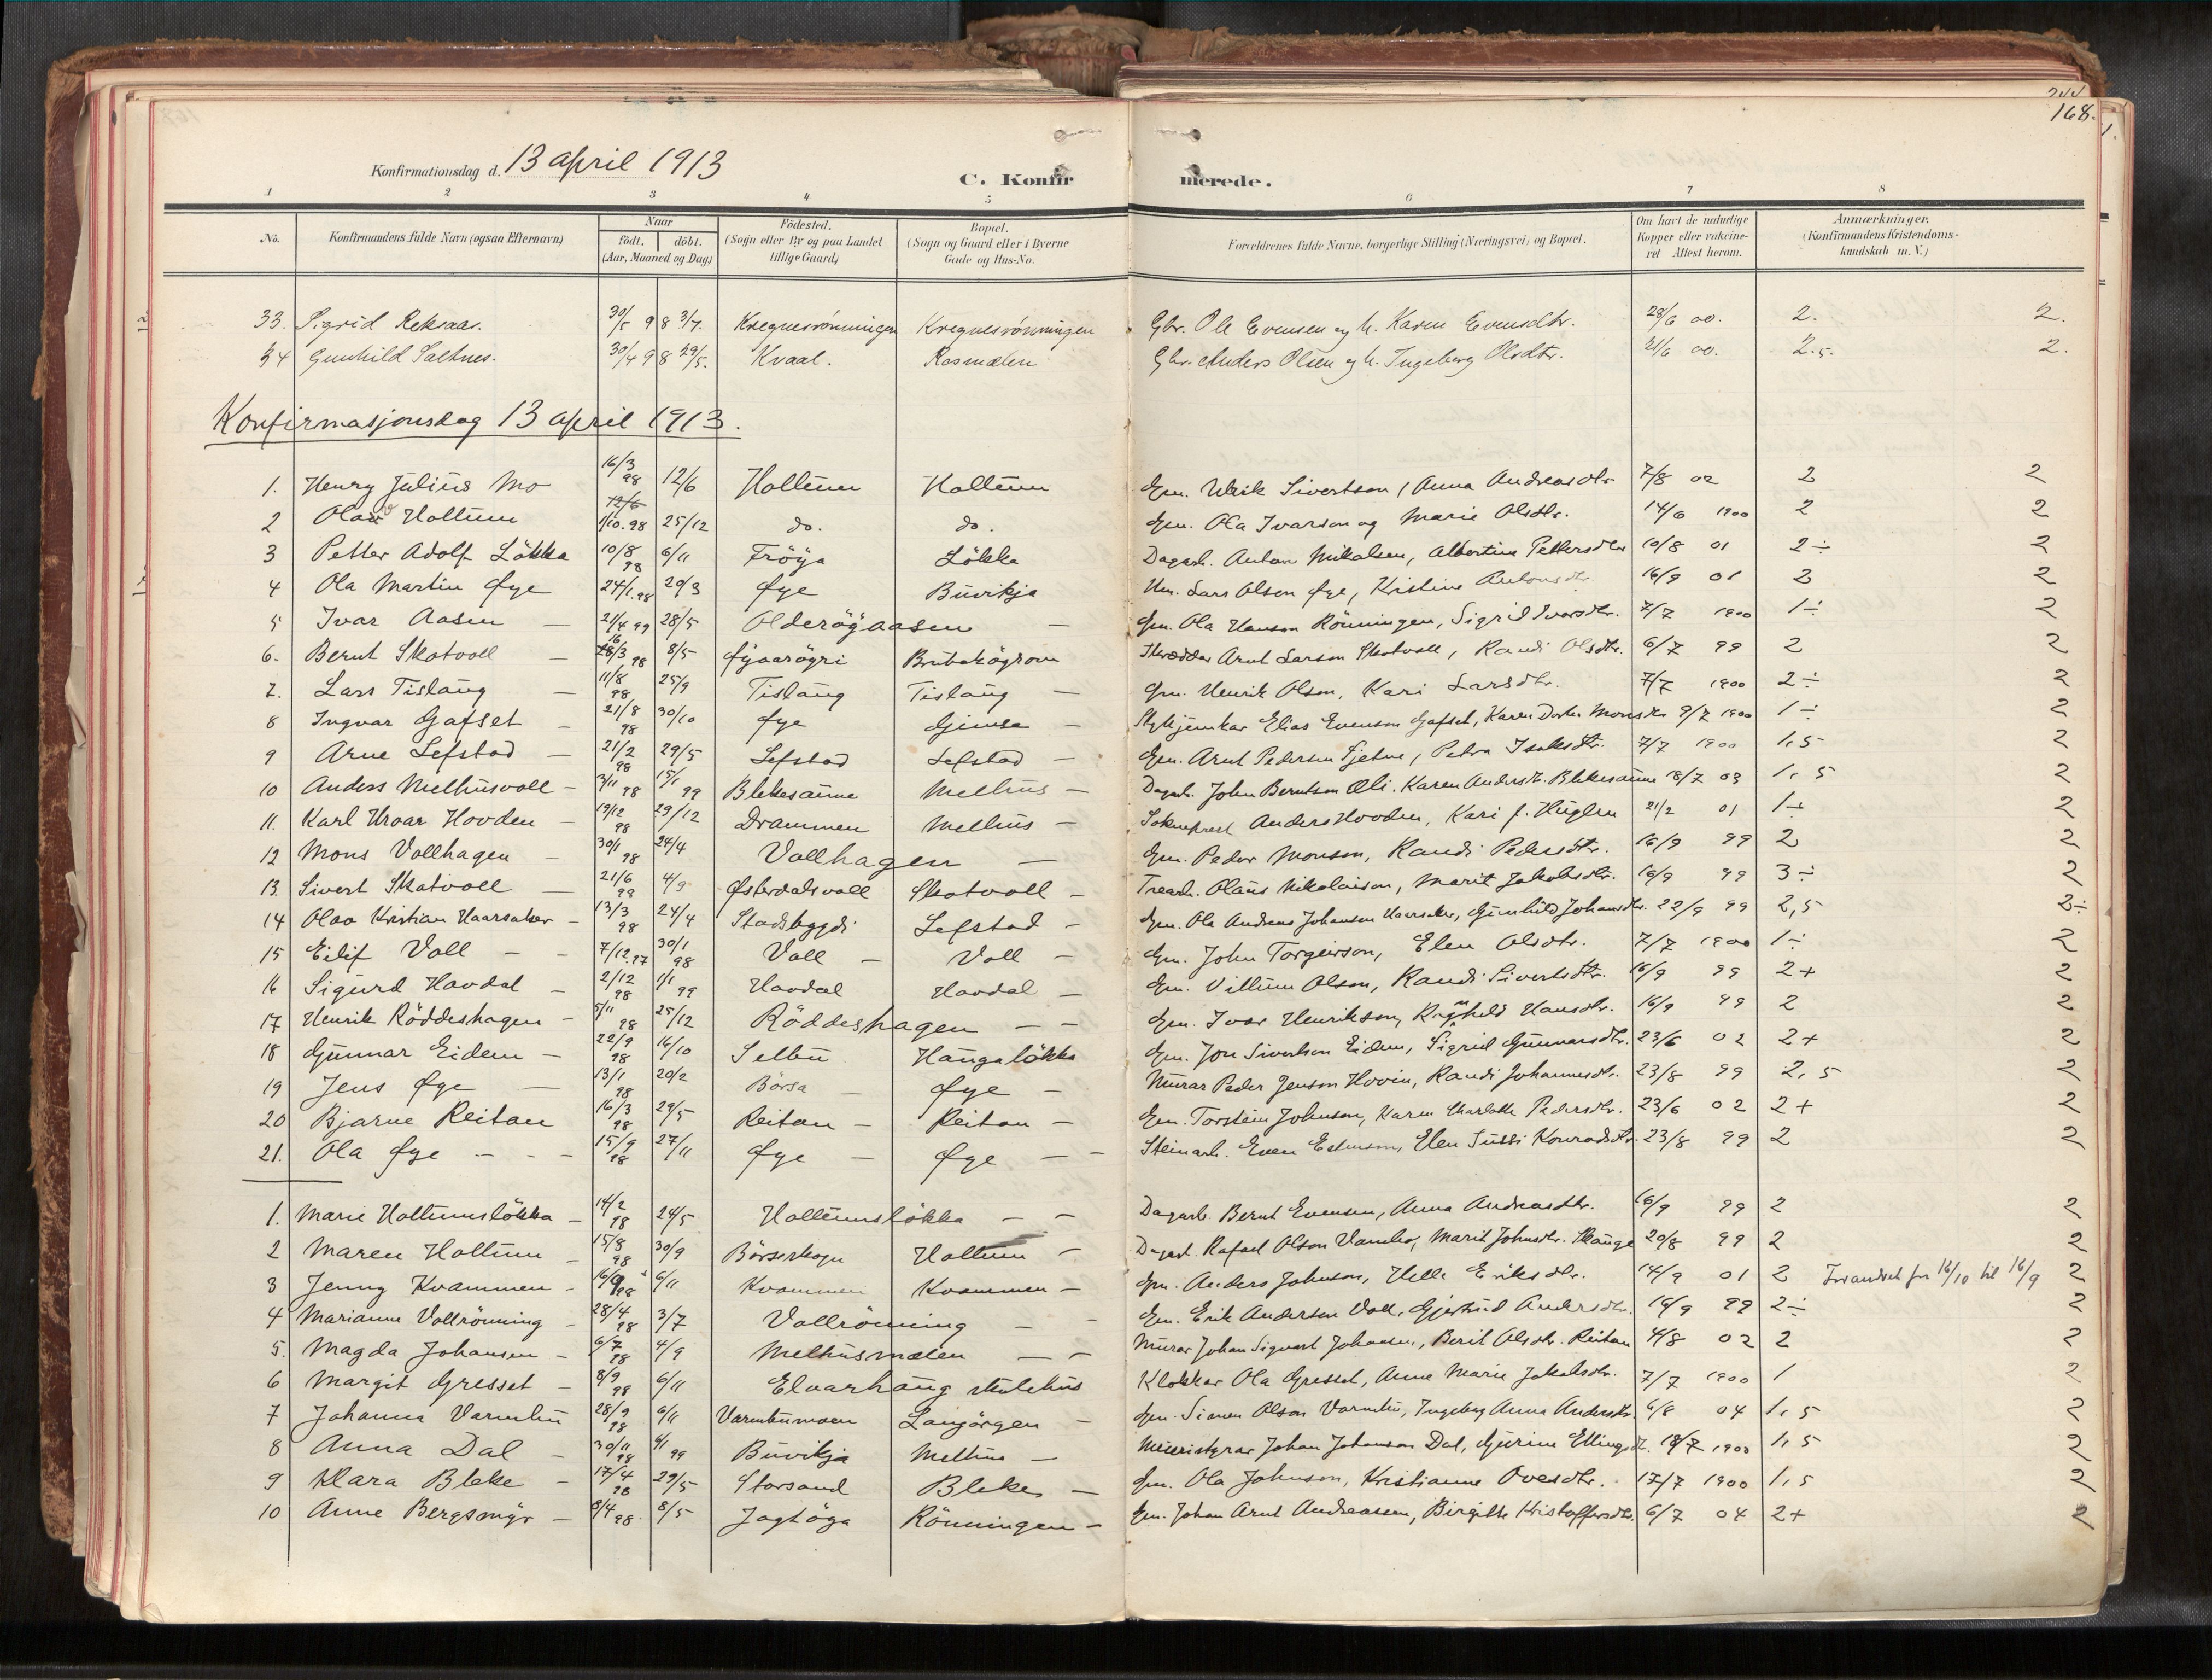 244
168.
Konfirmationsdag d. 13 april 1913
C. Konfirmerede.
1 2 3 4 5 6 7 8
No. Konfirmandens fulde Navn (ogsaa Efternavn) Naar födt. döbt. (Aar, Maaned og Dag) Födested. (Sogn eller By og paa Landet tillige Gaard) Bopæl. (Sogn og Gaard eller i Byerne Gade og Hus-No. Forældrenes fulde Navne, borgerlige Stilling (Næringsvei) og Bopæl. Om havt de naturlige Kopper eller vakcineret Attest herom. Anmærkninger. (Konfirmandens Kristendomskundskab m. V.)
33. Sigrid Reksaas. 30/5 98 3/7. Kregnesrönningen Kregnesrönningen Gbr. Ole Evensen og h. Karen Evensdtr. 28/6 00. 2. 2.
34 Gunhild Saltnes. 30/4 98 29/5. Kvaal. Rosmælen Gbr. Anders Olsen og h. Ingeborg Olsdtr. 21/6 00. 2.5. 2.
Konfirmasjonsdag 13 april 1913.
1. Henry Julius Mo 16/3 98 12/6 Hollum Hollum Gm. Ulrik Sivertson, Anna Andreasdtr 7/8 02 2 2
2 Olav Hollum 1/10. 98 25/12 do. do. Gm. Ola Ivarson og Marie Olsdtr. 14/6 1900 2 2
3 Petter Adolf Lökka 10/8 98 6/11 Fröya Lökka Dagarb. Anton Mikalsen, Albertine Pettersdtr 10/8 01 2÷ 2
4 Ola Martin Øye 24/1. 98 20/3 Øye Buvikja Um. Lars Olson Øye, Kristine Antonsdtr. 16/9 01 2 2
5 Ivar Aasen — 21/4 99 28/5 Olderöyaasen — Gm. Ola Hanson Rönningen, Sigrid Ivarsdtr. 7/7 1900 1÷ 2
6. Bernt Skotvoll — 16/3 98 8/5 Øyaarögri Brubakögrova Skrædder Arnt Larson Skotvoll, Randi Olsdtr. 6/7 99 2 2
7. Lars Tislaug — 11/8 98 25/9 Tislaug Tislaug — Gm. Henrik Olson, Kari Larsdtr. 7/7 1900 2÷ 2
8 Ingvar Gafset — 21/8 98 30/10 Øye Gimse — Elias Evenson Gafset, Karen Dortea Monsdtr 9/7 1900 1÷ 2
9 Arne Lefstad — 21/2 98 29/5 Lefstad Lefstad — Gm. Arnt Pederson Tjetne, Petra Isaksdtr. 7/7 1900 1,5 2
10 Anders Melhusvoll — 3/11 98 15/1 99 Blekesaune Melhus — Dagarb. John Berntson Øli. Karen Andersdtr. Blekesaune 18/7 03 1,5 2
11. Karl Hroar Hovden — 19/12 98 29/12 Drammen Melhus — Sokneprest Anders Hovden, Kari f. Huglen 21/2 01 1÷ 2
12 Mons Vollhagen — 30/1 98 24/4 Vollhagen — Gm. Peder Monson, Randi Pedersdtr. 16/9 99 2 2
13. Sivert Skatvoll — 21/6 98 4/9 Østerdalsvoll Skotvoll — Trearb. Olaus Nikolaison, Marit Jakobsdtr. 16/9 99 3÷ 2
14 Olav Kristian Haarsaker — 13/3 98 24/4 Stadsbygdi Lefstad — Gm. Ola Andreas Johanson Haarsaker, Gunhild Johansdtr. 22/9 99 2,5 2÷
15 Eilif Voll — — 7/12. 97 30/1 98 Voll — Voll — Gm. John Torgeirson, Elen Olsdtr. 7/7 1900 1÷ 2
16 Sigurd Havdal — 2/12 98 1/1 99 Havdal Havdal — Gm. Villum Olson, Randi Sivertsdtr. 16/9 99 2+ 2
17 Henrik Röddeshagen — 5/11 98 25/12 Röddeshagen — — Gm. Ivar Henrikson, Ragnhild Hansdtr. 16/9 99 2 2
18 Gunnar Eidem — 22/9 98 16/10 Selbu Haugalökka Gm. Jon Sivertson Eidem, Sigrid Gunnarsdtr. 23/6 02 2+ 2
19 Jens Øye — 13/1 98 20/2 Börsa — Øye — Murar Peder Jenson Hovin, Randi Johannesdtr. 23/8 99 2,5 2
20 Bjarne Reitan 16/3 98 29/5 Reitan — Reitan — Gm. Torstein Johnson, Karen Charlotte Pedersdtr. 23/6 02 2+ 2
21. Ola Øye — — — 15/9 98 27/11 Øye — Øye — — Steinarb. Even Estenson, Elen Sussi Konradsdtr. 23/8 99 2 2
1. Marie Hollumslökka — 14/2 98 24/5 Hollumslökka — — Dagarb. Bernt Evensen, Anna Andreasdtr. 16/9 99 2 2
2 Maren Hollum — 15/8 98 30/9 Börseskogn Hollum — Dagarb. Rafael Olson, Marit Johnsdtr. Skauge 20/8 99 2 2
3 Jenny Kvammen — 16/9 98 6/11 Kvammen Kvammen — Gm. Anders Johnson, Helle Eriksdtr. 14/9 01 2 Forandret fra 16/10 til 16/9 2
4 Marianne Vollrönning — 28/4 98 3/7 Vollrönning — — Gm. Erik Anderson Voll, Gjertrud Andersdtr. 16/9 99 2÷ 2
5. Magda Johansen — 6/7 98 4/9 Melhusmælen — — Murar Johan Sigvart Johansen, Berit Olsdtr. Reitan 4/8 02 2 2
6 Margit Gresset — 8/9 98 6/11 Elvarhaug skulehus Klokkar Ola Gresset, Anne Marie Jakobsdtr. 7/7 1900 1 2
7 Johanna Varmbu 28/9 98 6/11 Varmbumoen Langörgen — Gm. Simen Olson Varmbu, Ingeborg Anna Andersdtr. 6/8 04 1,5 2
8 Anna Dal — 30/11 98 6/1 99 Buvikja Melhus — Meieristyrar Johan Johanson Dal, Gurine Ellingsdtr. 18/7 1900 1,5 2
9 Klara Bleke — 17/4 98 29/5 Storsand Bleke — Gm. Ola Johnson, Kristianne Ovesdtr. 17/7 1900 1,5 2
10 Anne Bergsmyr — 8/4 98. 8/5 Jagtöya Rönningen — Gm. Johan Arnt Andreasen, Birgitte Kristoffersdtr. 6/7 04 2+ 2